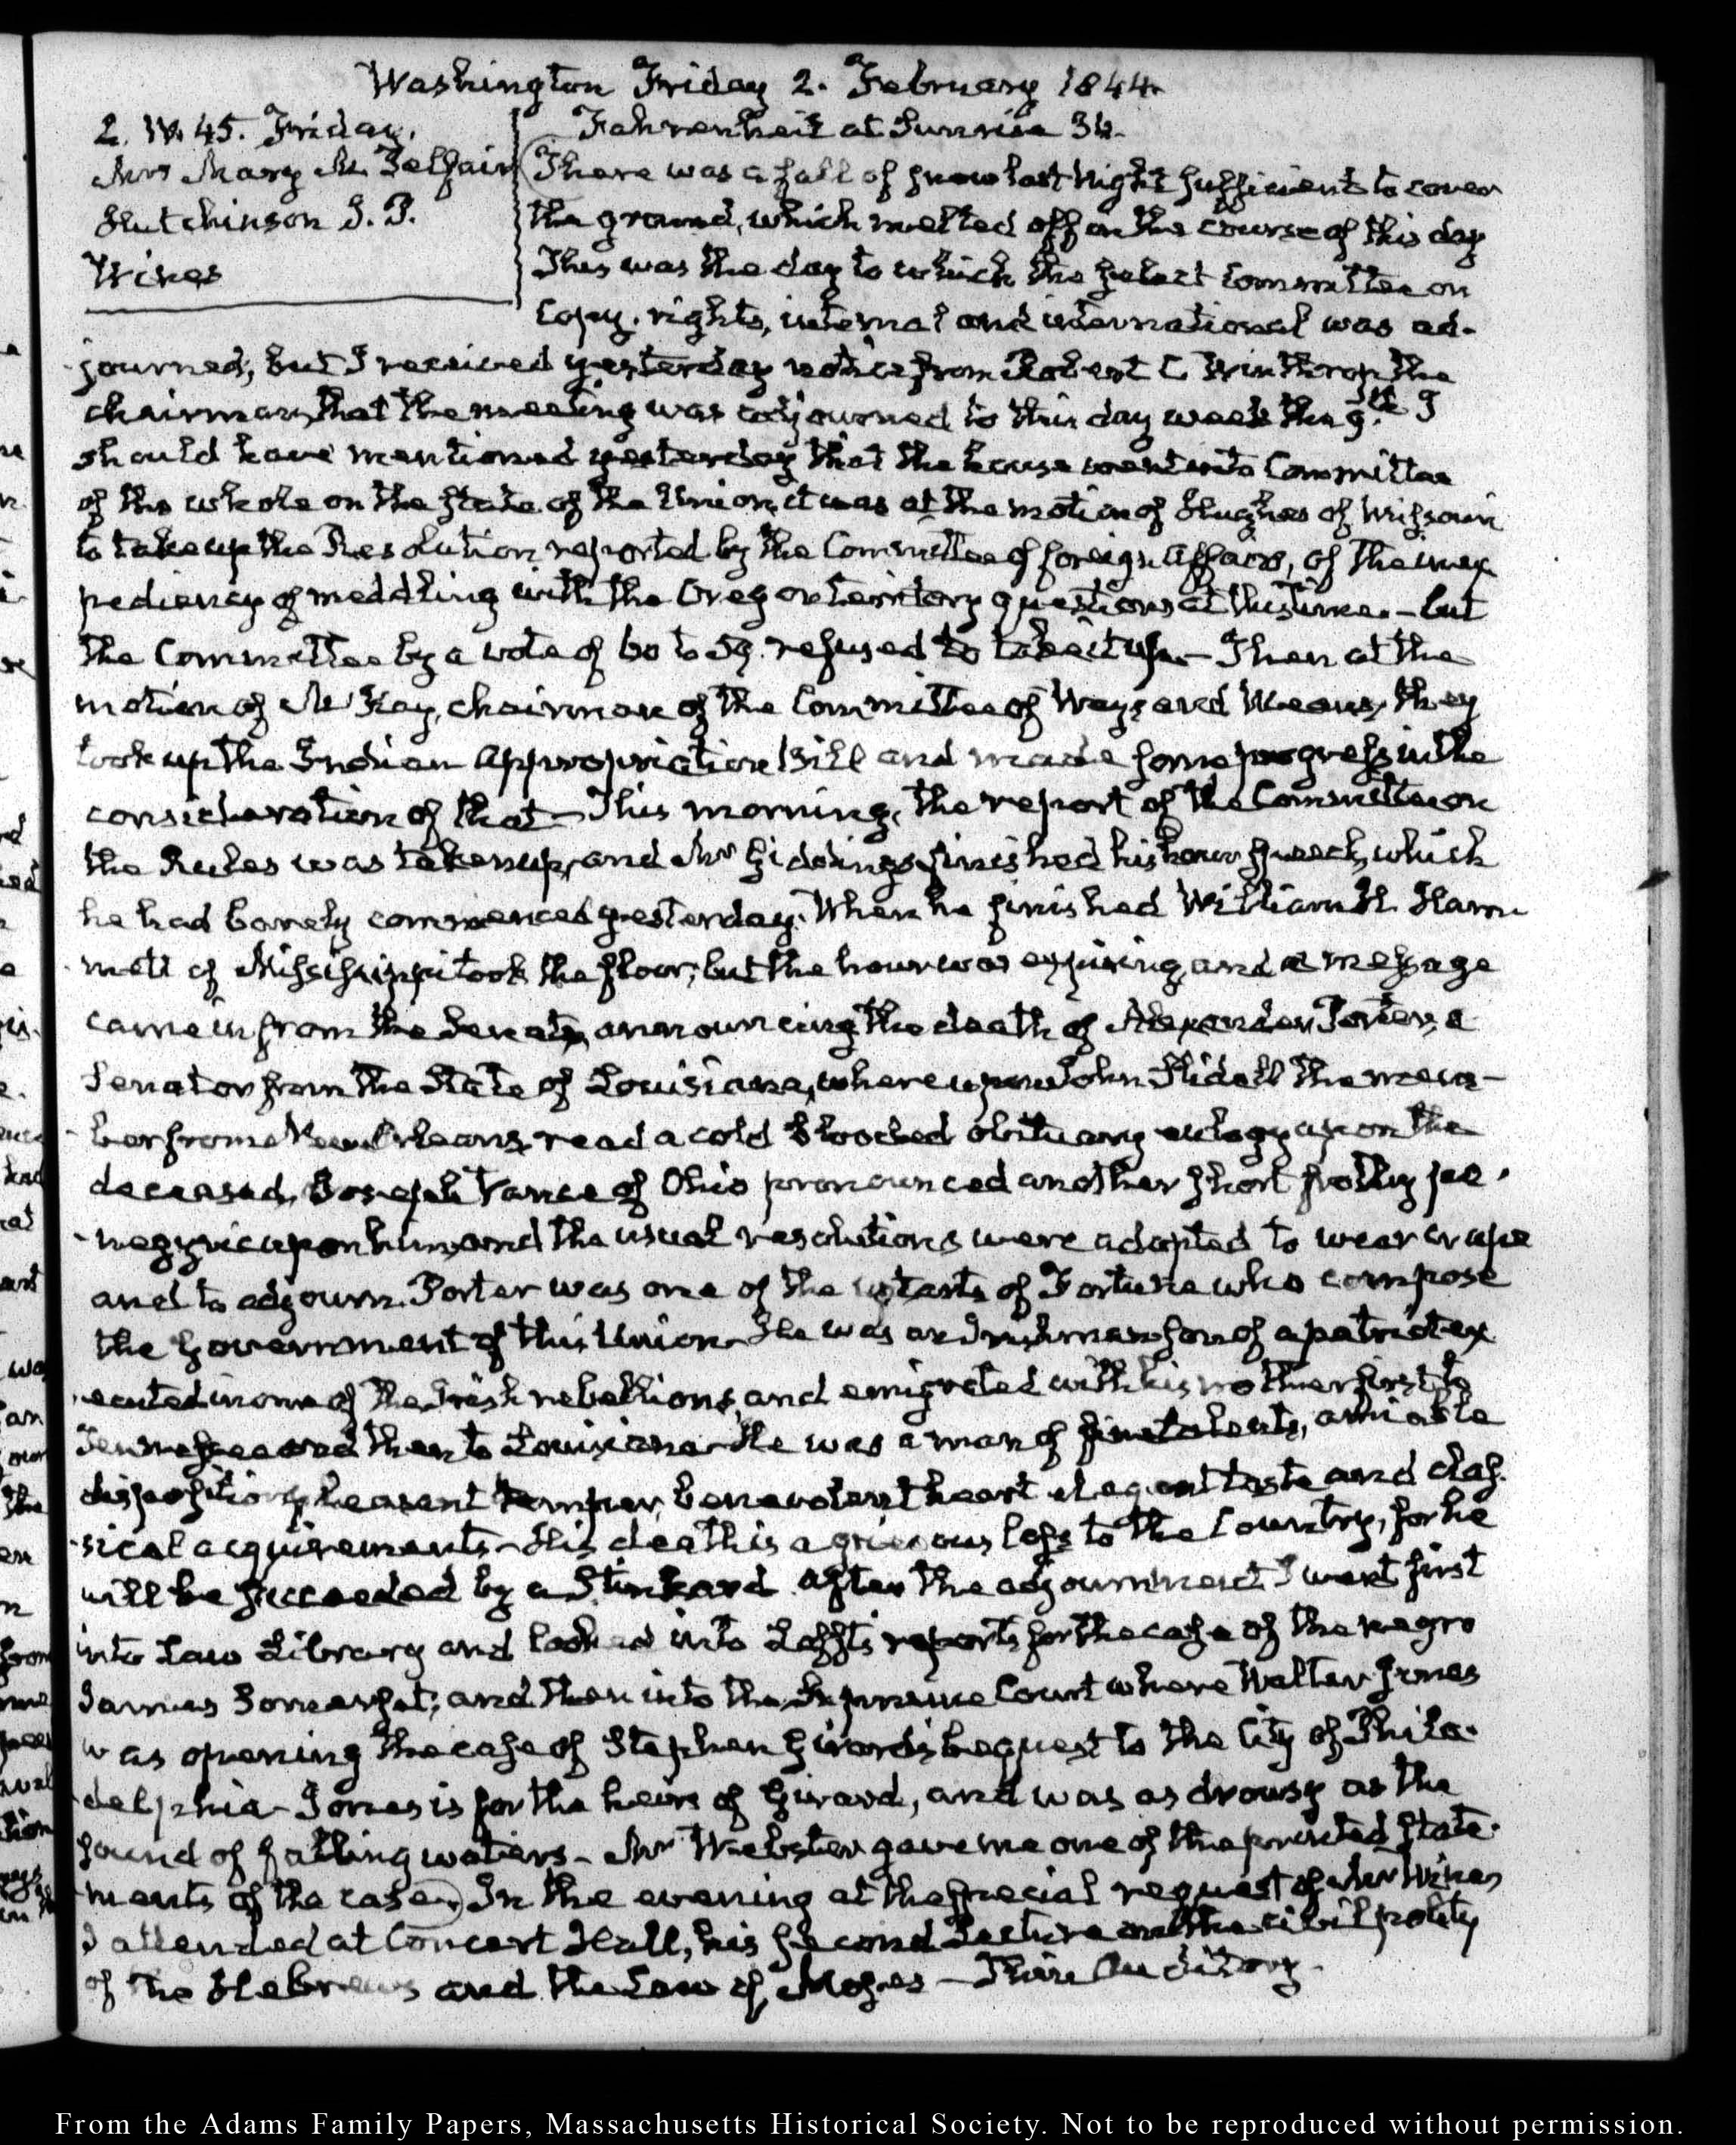 Washington Friday 2. February 1844.
2. IV. 45. Friday.
Mrs Mary M. Telfair
Hutchinson J. P.
Wines
Fahrenheit at Sunrise 34.
There was a fall of snow last night sufficient to cover
the ground, which melted off in the course of this day
This was the day to which the select Committee on
Copy-rights, internal and international was ad-
journed; but I received yesterday notice from Robert C Winthrop the
chairman, that the meeting was adjourned to this day week the 9.th I
should have mentioned yesterday that the house went into Committee
of the whole on the state of the Union, it was at the motion of Hughes of Missouri
to take up the Resolution reported by the Committee of foreign Affairs, of the inex
pediency of meddling with the Oregon territory questions at this time. – but
the Committee by a vote of 60 to 59. refused to take it up. – Then at the
motion of McKay, chairman of the Committee of Ways and Means, they
took up the Indian appropriation Bill and made some progress in the
consideration of that – This morning, the report of the Committee on
the Rules was taken up, and Mr Giddings finished his hour speech, which
he had barely commenced yesterday. When he finished William H. Ham
mett of Mississippi took the floor; but the hour was expiring, and a message
came in from the Senate, announcing the death of Alexander Porter, a
Senator from the State of Louisiana, whereupon John Slidell the mem-
ber from New Orleans, read a cold blooded obituary eulogy upon the
deceased, Joseph Vance of Ohio pronounced another short frothy pa-
negyric upon him, and the usual resolutions were adopted to wear crape
and to adjourn. Porter was one of the upstarts of Fortune who compose
the Government of this Union – He was an Irishman son of a patriot ex
ecuted in one of the Irish rebellions, and emigrated with his mother first to
Tennessee and then to Louisiana – He was a man of fine talents, amiable
disposition, pleasant temper, benevolent heart elegant taste and clas-
sical acquirements – His death is a grievous loss to the Country, for he
will be succeeded by a Stinkard. After the adjournment I went first
into Law Library and looked into Lofft's reports for the case of the negro
James Somerset; and then into the Supreme Court where Walter Jones
was opening the case of Stephen Girard's bequest to the City of Phila-
delphia – Jones is for the heirs of Girard, and was as drowsy as the
sound of falling waters – Mr Webster gave me one of the printed state-
ments of the case. In the evening at the special request of Mr Wines
I attended at Concert Hall, his second Lecture on the civil polity
of the Hebrews and the Law of Moses – Thin Auditory.
From the Adams Family Papers, Massachusetts Historical Society. Not to be reproduced without permission.